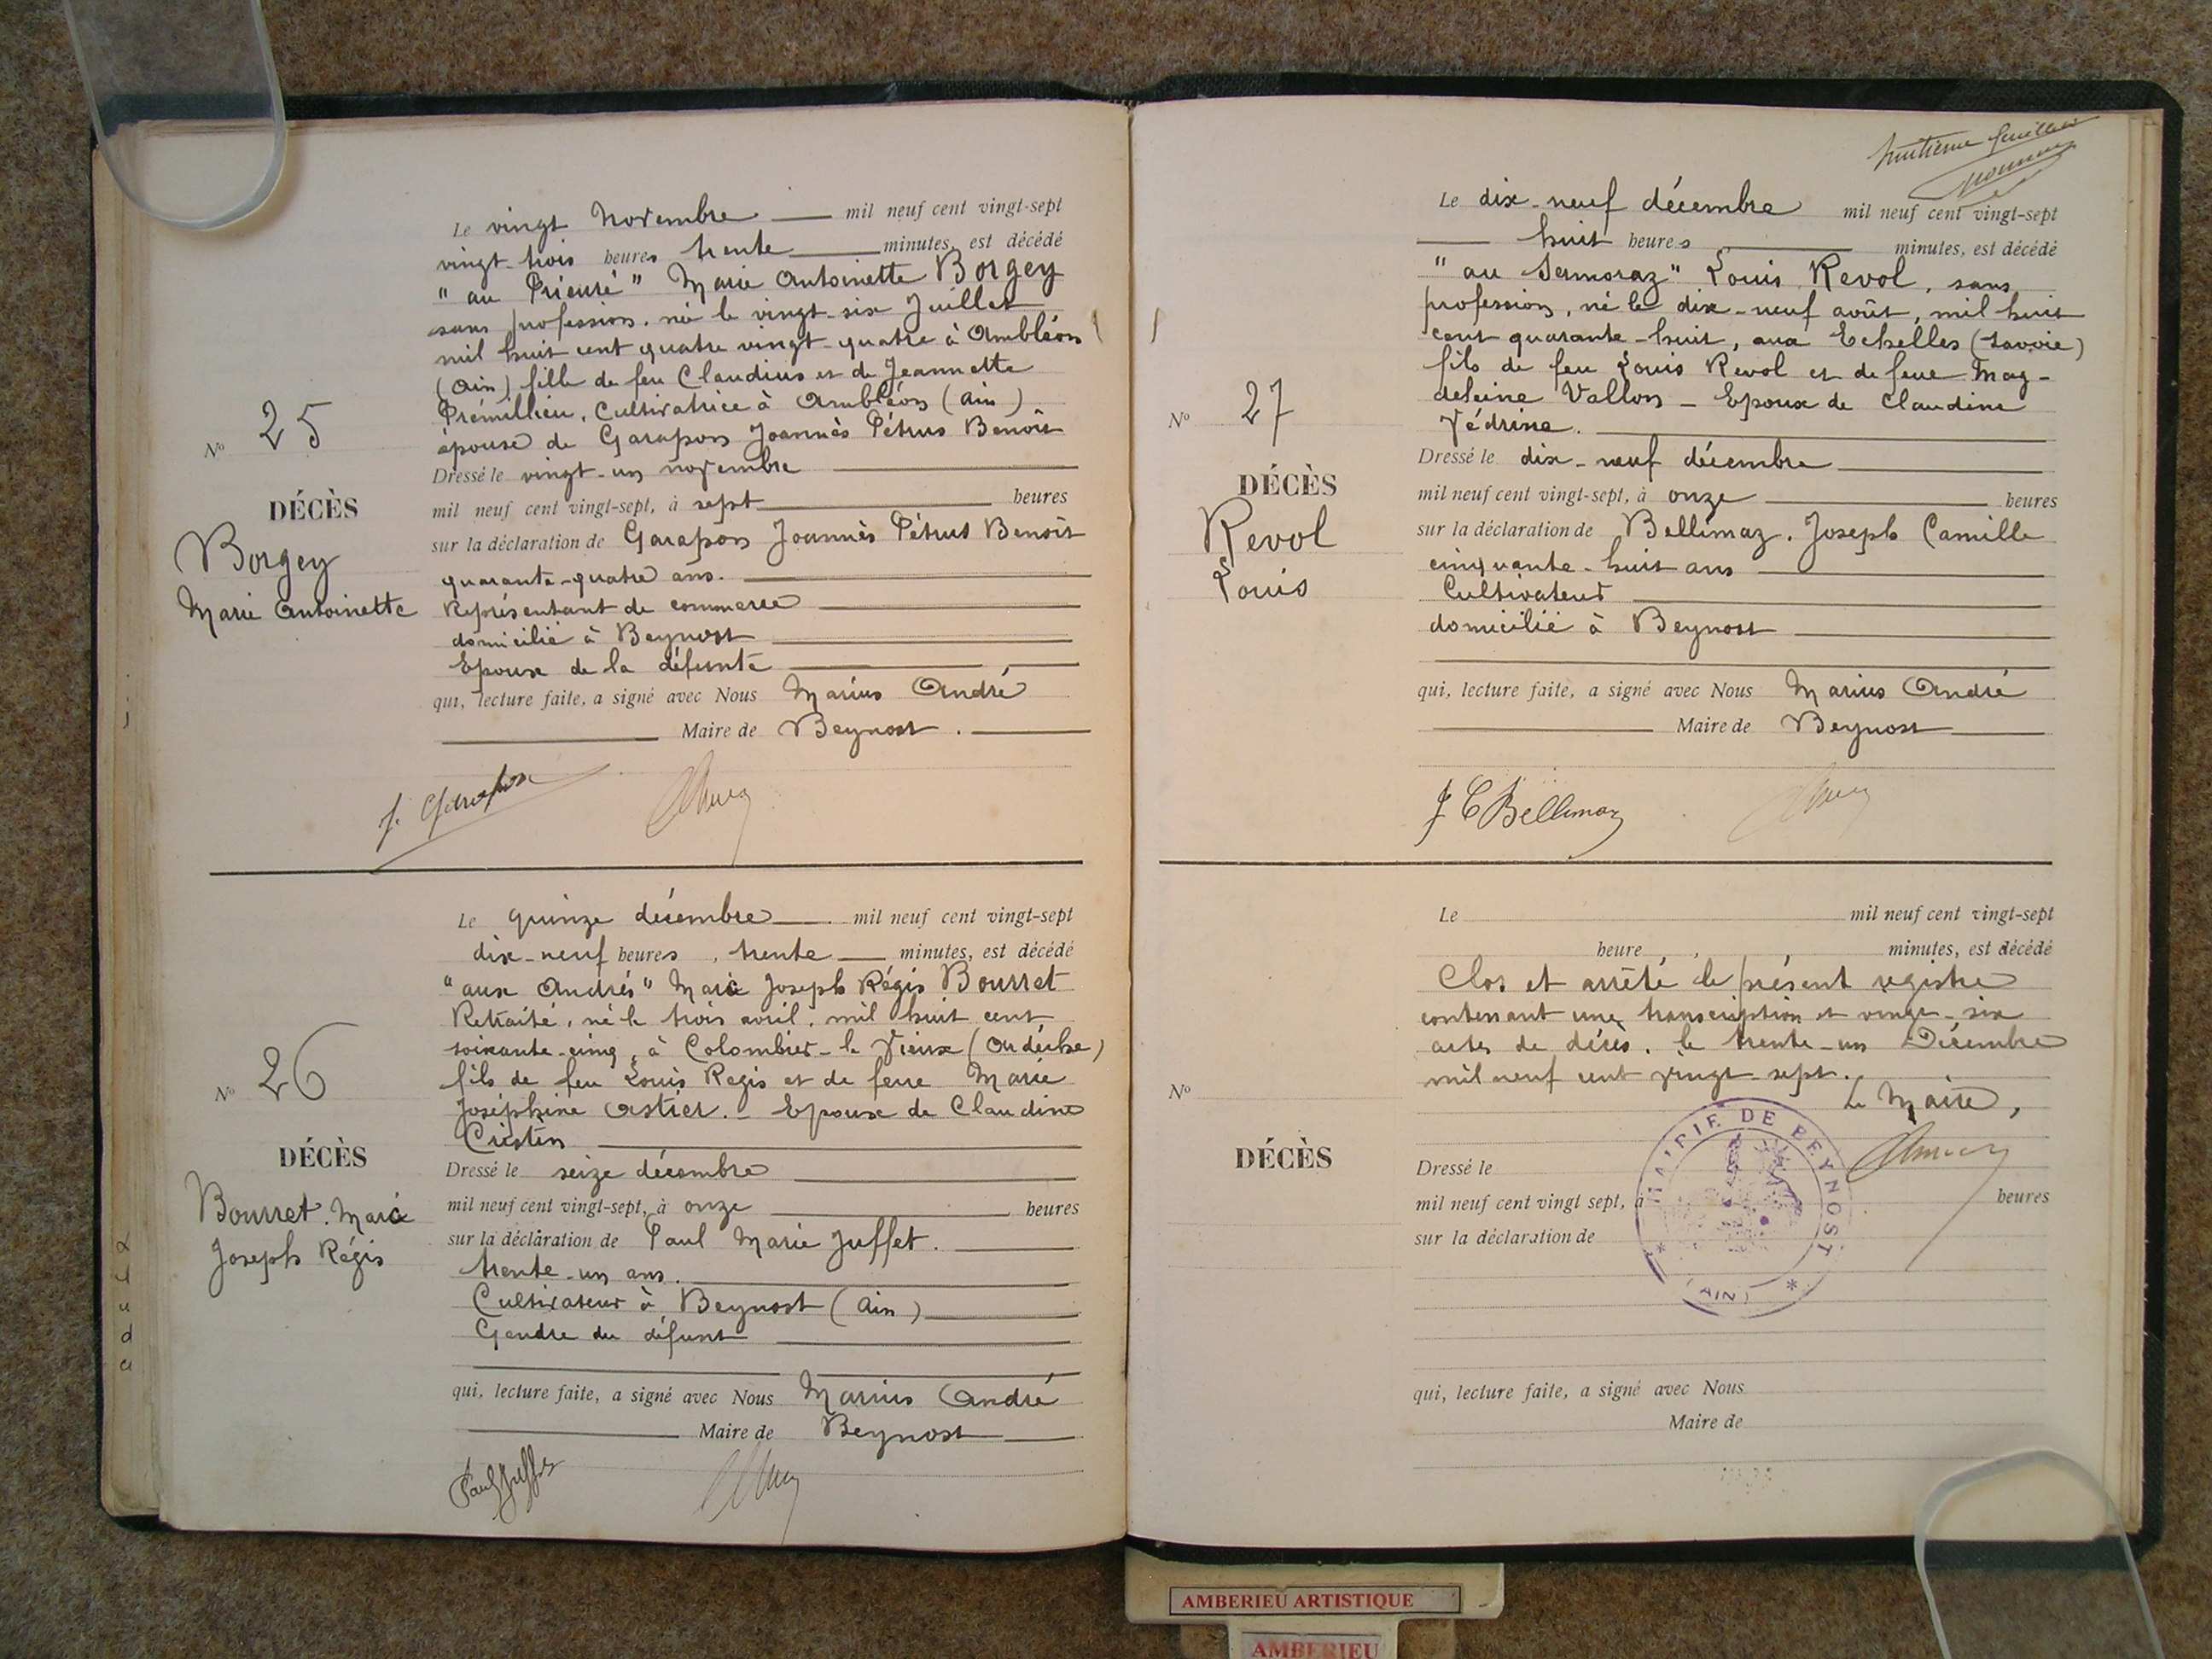 Le vingt Novembre mil neuf cent vingt-sept
vingt-trois heures trente minutes, est décédé
"au Prieuré" Marie Antoinette Borgey
sans profession. née le vingt-six Juillet
mil huit cent quatre vingt-quatre à Ambléon
(Ain) fille de feu Claudius et de Jeannette
Prémillieu, Cultivatrice à Ambléon (Ain)
épouse de Garapon Joannès Pétrus Benoît
Dressé le vingt-un novembre
mil neuf cent vingt-sept, à sept heures
sur la déclaration de Garapon Joannès Pétrus Benoît
quarante-quatre ans.
Représentant de commerce
domicilié à Beynost
Epoux de la défunte
qui, lecture faite, a signé avec Nous Marius André
Maire de Beynost.
J. Garapon
No 25
DÉCÈS
Borgey
Marie Antoinette
Le quinze décembre mil neuf cent vingt-sept
dix-neuf heures, trente minutes, est décédé
"aux Andrés" Marie Joseph Régis Bourret
Retraité, né le trois avril, mil huit cent
soixante-cinq, à Colombier-le Vieux (Ardèche)
fils de feu Louis Regis et de feue Marie
Joséphine Astier. - Epoux de Claudine
Crestin
Dressé le seize décembre
mil neuf cent vingt-sept, à onze heures
sur la déclaration de Paul Marie Juffet.
trente-un ans.
Cultivateur à Beynost (Ain)
Gendre du défunt
qui, lecture faite, a signé avec Nous Marius André
Maire de Beynost
Paul Juffet
No 26
DÉCÈS
Bourret. Marie
Joseph Régis
huitième feuillet
Le dix-neuf décembre mil neuf cent vingt-sept
huit heures minutes, est décédé
"au Sermoraz" Louis Revol, sans
profession, né le dix-neuf août, mil huit
cent quarante-huit, aux Echelles (Savoie)
fils de feu Louis Revol et de feue Mag-
deleine Vallon - Epoux de Claudine
Védrine.
Dressé le dix-neuf décembre
mil neuf cent vingt-sept, à onze heures
sur la déclaration de Bellimaz. Joseph Camille
cinquante-huit ans
Cultivateur
domicilié à Beynost
qui, lecture faite, a signé avec Nous Marius André
Maire de Beynost
J C Bellimaz
No 27
DÉCÈS
Revol
Louis
Le mil neuf cent vingt-sept
heure, minutes, est décédé
Clos et arrêté le présent registre
contenant une transcription et vingt-six
actes de décès. le trente-un Décembre
mil neuf cent vingt-sept.
Le Maire,
No
DÉCÈS
Dressé le
mil neuf cent vingt sept, à heures
sur la déclaration de
MAIRIE DE BEYNOST
* (AIN) *
qui, lecture faite, a signé avec Nous
Maire de
AMBERIEU ARTISTIQUE
AMBERIEU